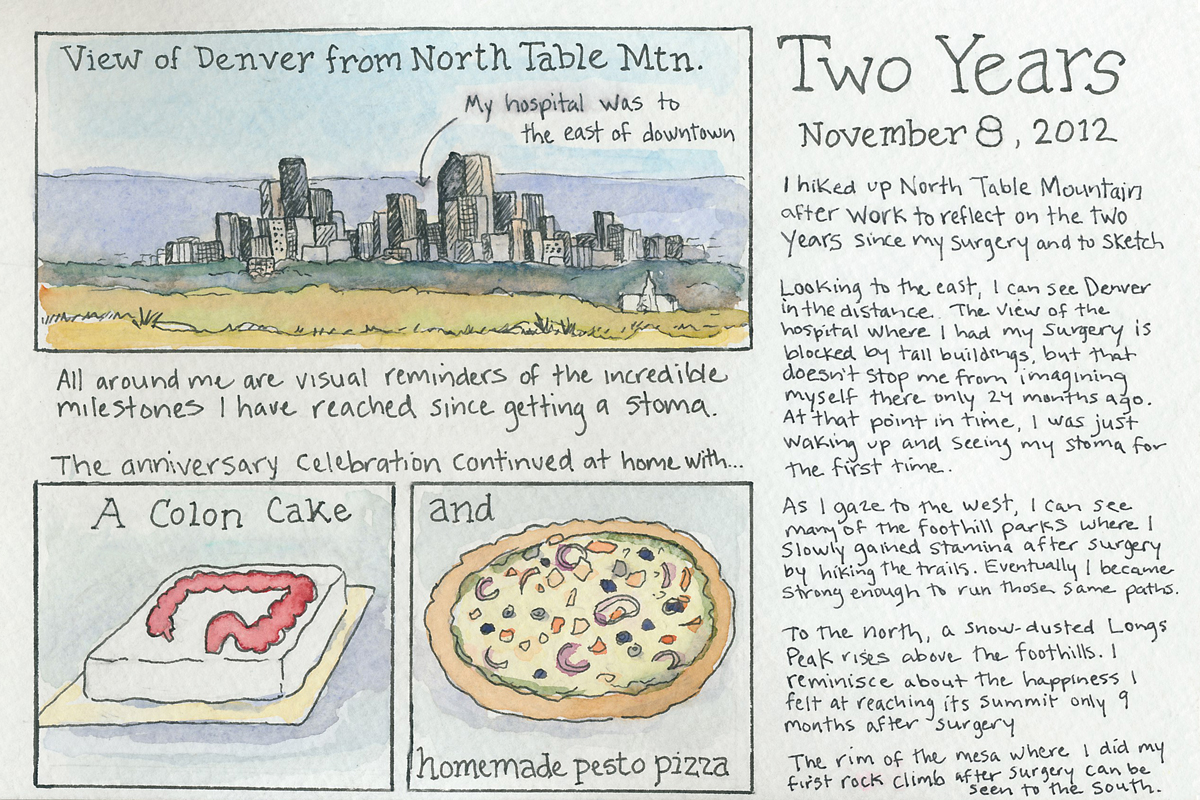 View of Denver from North Table Mtn.
My hospital was to
the east of downtown
All around me are visual reminders of the incredible
milestones I have reached since getting a stoma.
The anniversary celebration continued at home with...
A Colon Cake
and
homemade pesto pizza
Two Years
November 8, 2012
I hiked up North Table Mountain
after work to reflect on the two
years since my surgery and to sketch
Looking to the east, I can see Denver
in the distance. The view of the
hospital where I had my surgery is
blocked by tall buildings, but that
doesn't stop me from imagining
myself there only 24 months ago.
At that point in time, I was just
waking up and seeing my stoma for
the first time.
As I gaze to the west, I can see
many of the foothill parks where I
slowly gained stamina after surgery
by hiking the trails. Eventually I became
strong enough to run those same paths.
To the north, a snow-dusted Longs
Peak rises above the foothills. I
reminisce about the happiness I
felt at reaching its summit only 9
months after surgery
The rim of the mesa where I did my
first rock climb after surgery can be
seen to the south.